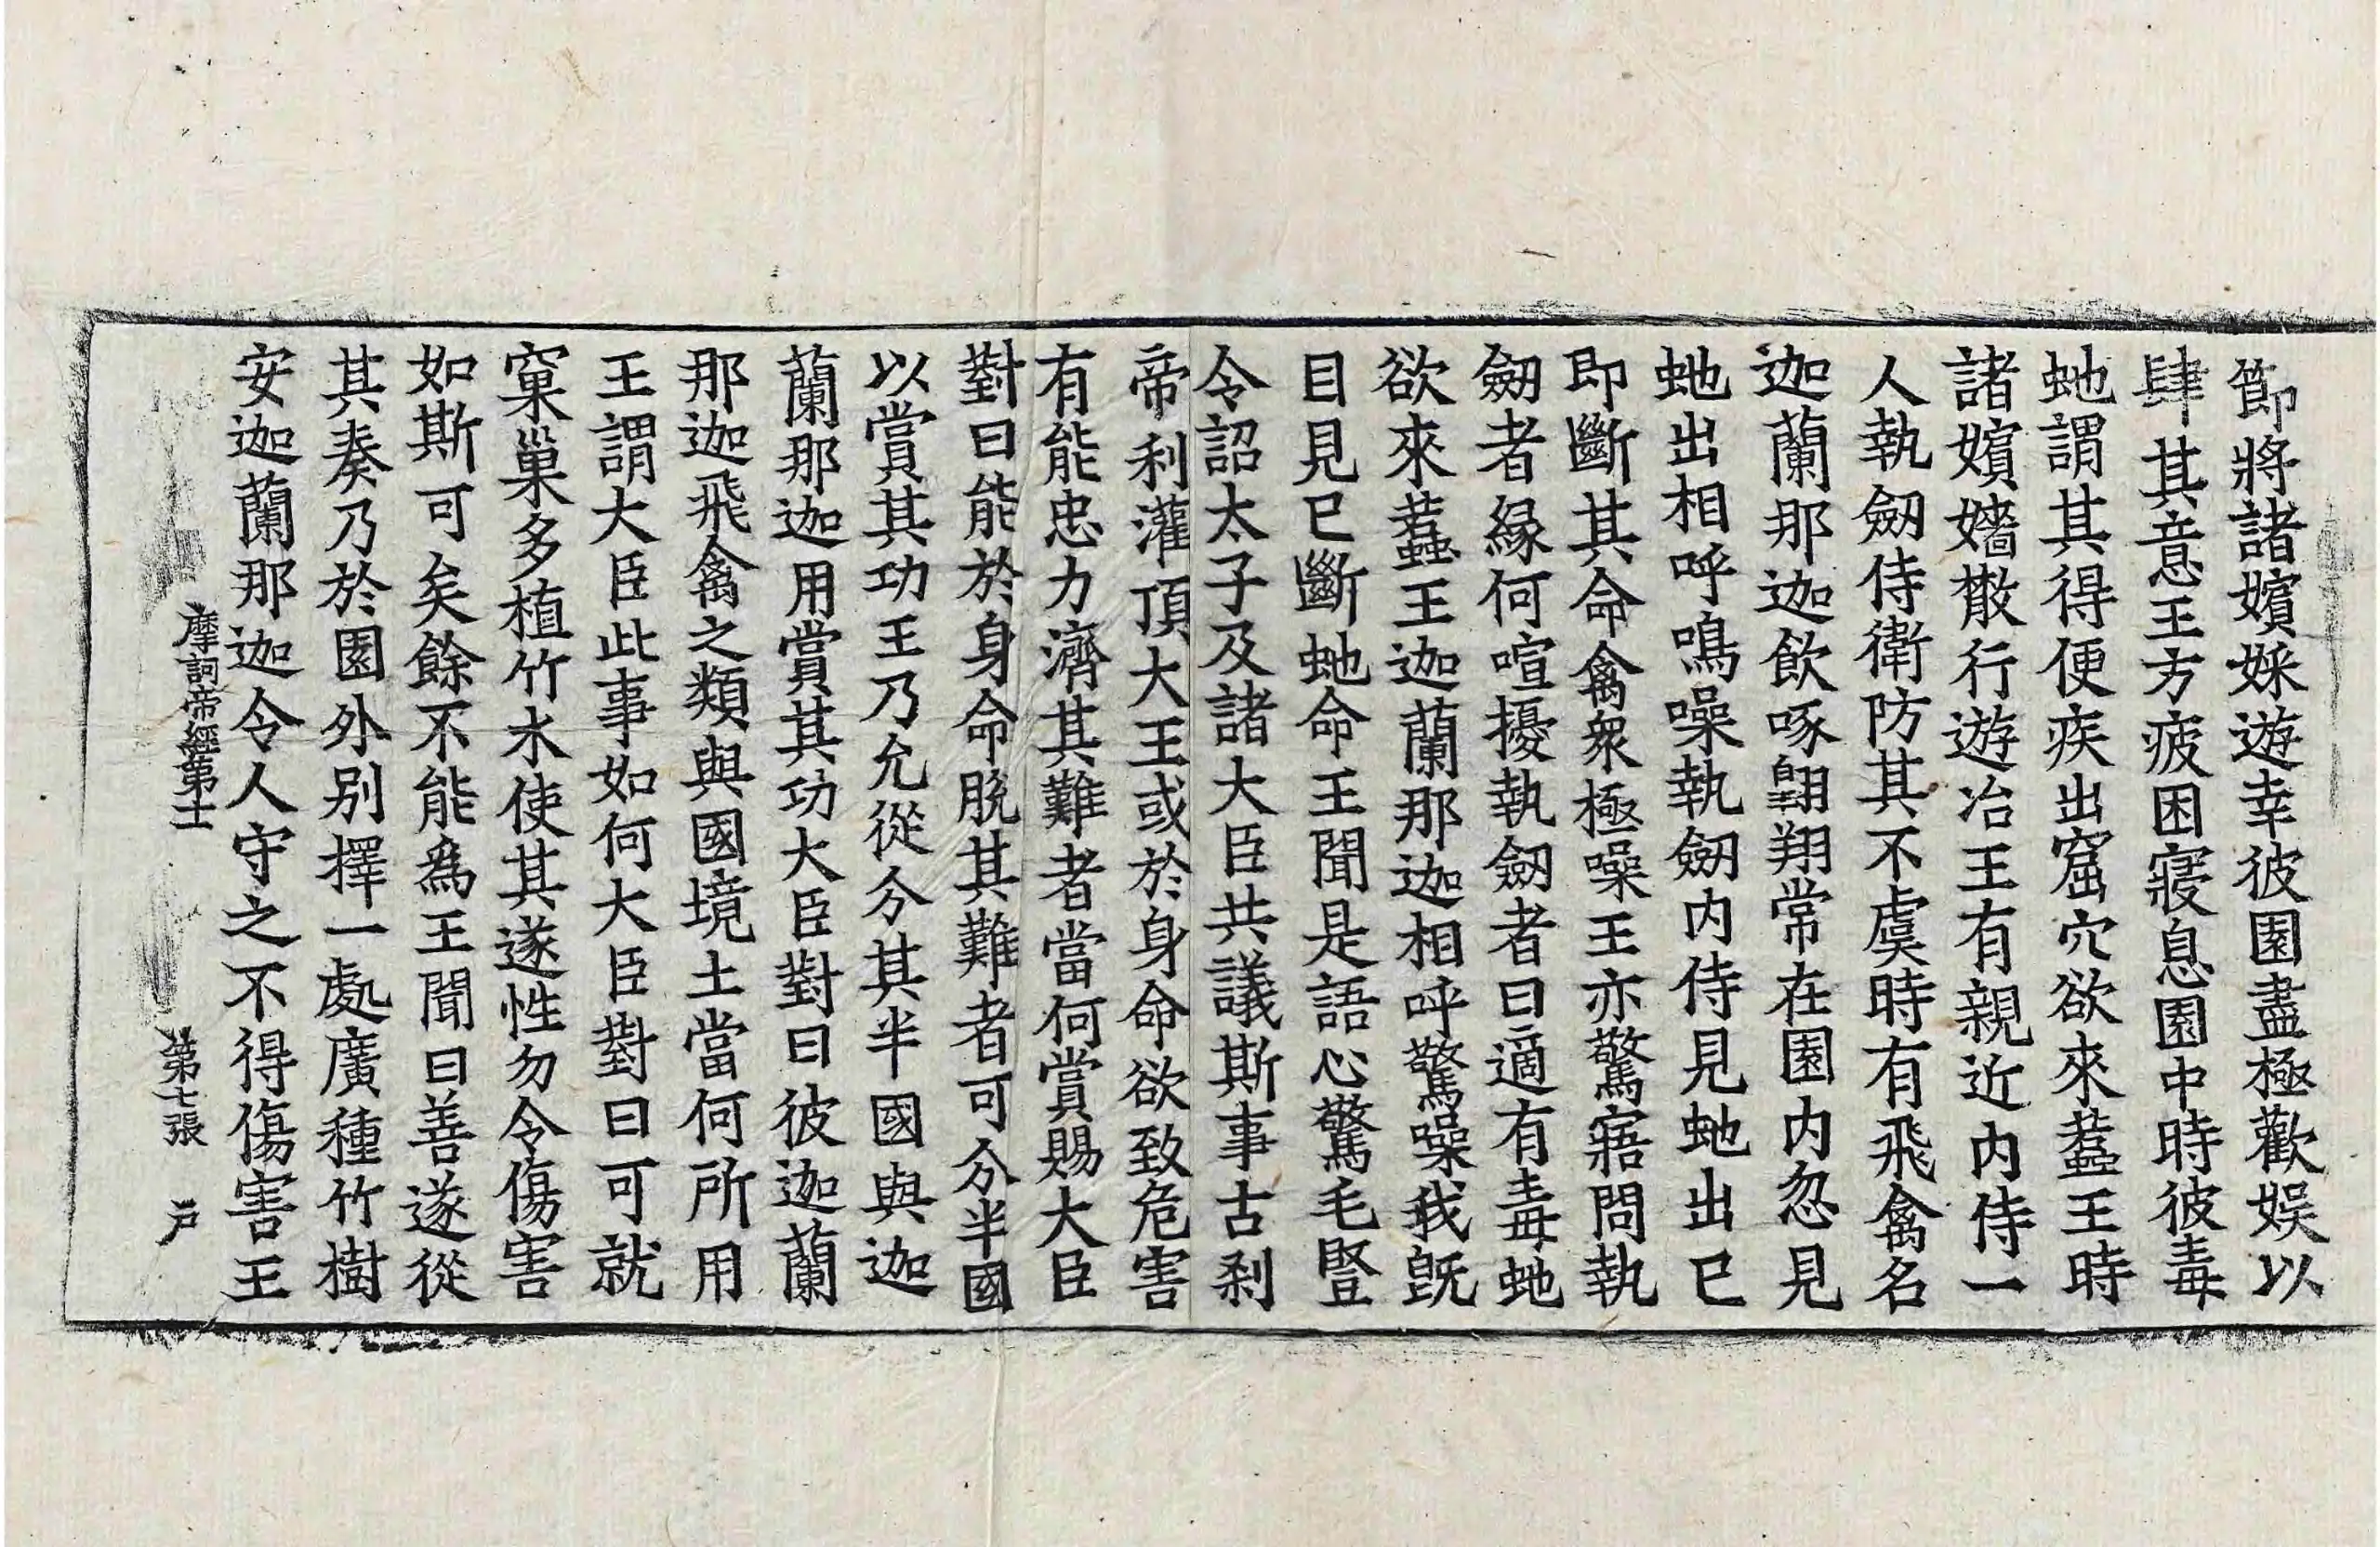 節將諸嬪婇遊幸彼園盡極歡娛以
肆其意王方疲困寢息園中時彼毒
虵謂其得便疾出窟穴欲來蠚王時
諸嬪嬙散行遊冶王有親近內侍一
人執劒侍衛防其不虞時有飛禽名
迦蘭那迦飲啄翺翔常在園內忽見
虵出相呼鳴噪執劒內侍見虵出已
即斷其命禽衆極噪王亦驚寤問執
劒者緣何喧擾執劒者曰適有毒虵
欲來蠚王迦蘭那迦相呼驚噪我旣
目見已斷虵命王聞是語心驚毛豎
令詔太子及諸大臣共議斯事古刹
帝利灌頂大王或於身命欲致危害
有能忠力濟其難者當何賞賜大臣
對曰能於身命脫其難者可分半國
以賞其功王乃允從分其半國與迦
蘭那迦用賞其功大臣對曰彼迦蘭
那迦飛禽之類與國境土當何所用
王謂大臣此事如何大臣對曰可就
窠巢多植竹木使其遂性勿令傷害
如斯可矣餘不能爲王聞曰善遂從
其奏乃於園外別擇一處廣種竹樹
安迦蘭那迦令人守之不得傷害王
摩訶帝經第十二 第七張 戶